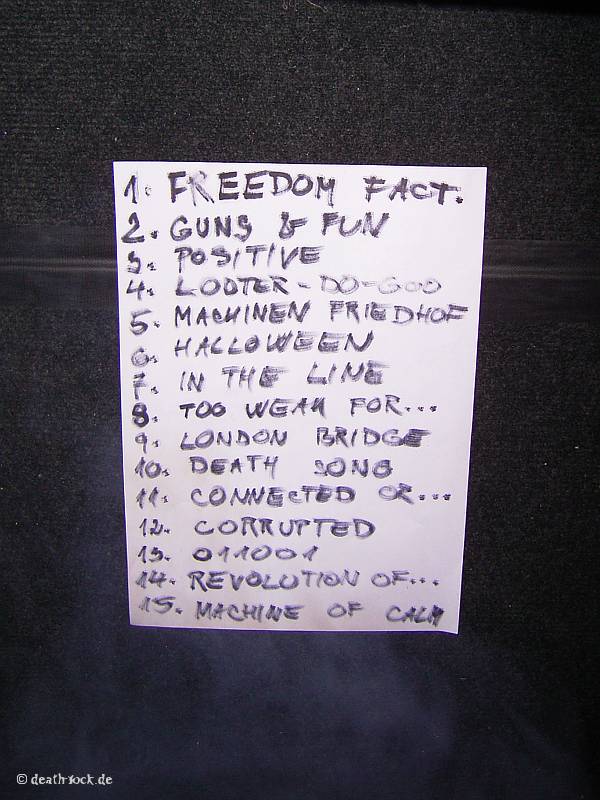 1. FREEDOM FACT.
2. GUNS & FUN
3. POSITIVE
4. LOOTER-DO-GOO
5. MACHINEN FRIEDHOF
6. HALLOWEEN
7. IN THE LINE
8. TOO WEAK FOR...
9. LONDON BRIDGE
10. DEATH SONG
11. CONNECTED OR...
12. CORRUPTED
13. 011001
14. REVOLUTION OF...
15. MACHINE OF CALM
© death-rock.de